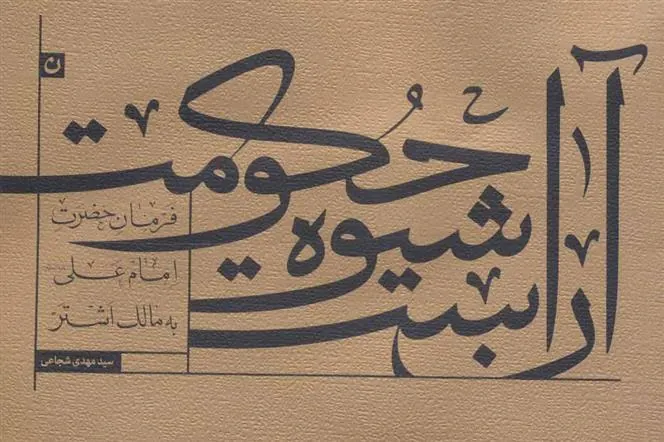 ن
آن است
شیوه
حکومت
فرمان حضرت
امام علی
به مالک اشتر
سید مهدی شجاعی